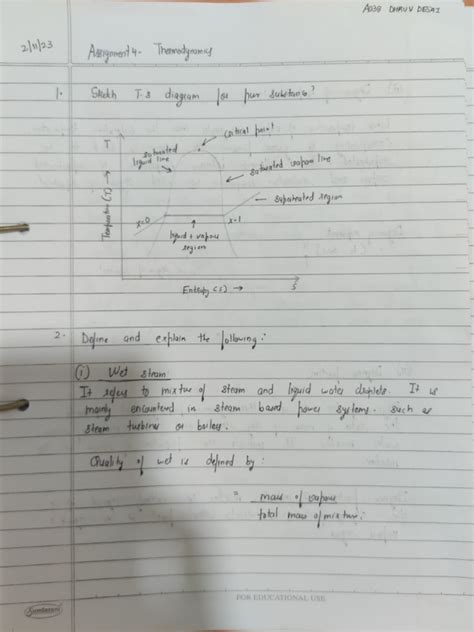 A038 DHRUV DESAI
2/11/23
Assignment 4 - Thermodynamics
1. Sketch T-s diagram for pure substance?
T
critical point
saturated
liquid line
saturated vapour line
superheated region
x=0
x=1
liquid + vapour
region
Temperature (T) →
Entropy (S) →
S
2. Define and explain the following:
(i) Wet steam
It refers to mixture of steam and liquid water droplets. It is
mainly encountered in steam based power systems. such as
steam turbines or boilers.
Quality of wet is defined by:
= mass of vapour
total mass of mixture.
Sundaram
FOR EDUCATIONAL USE